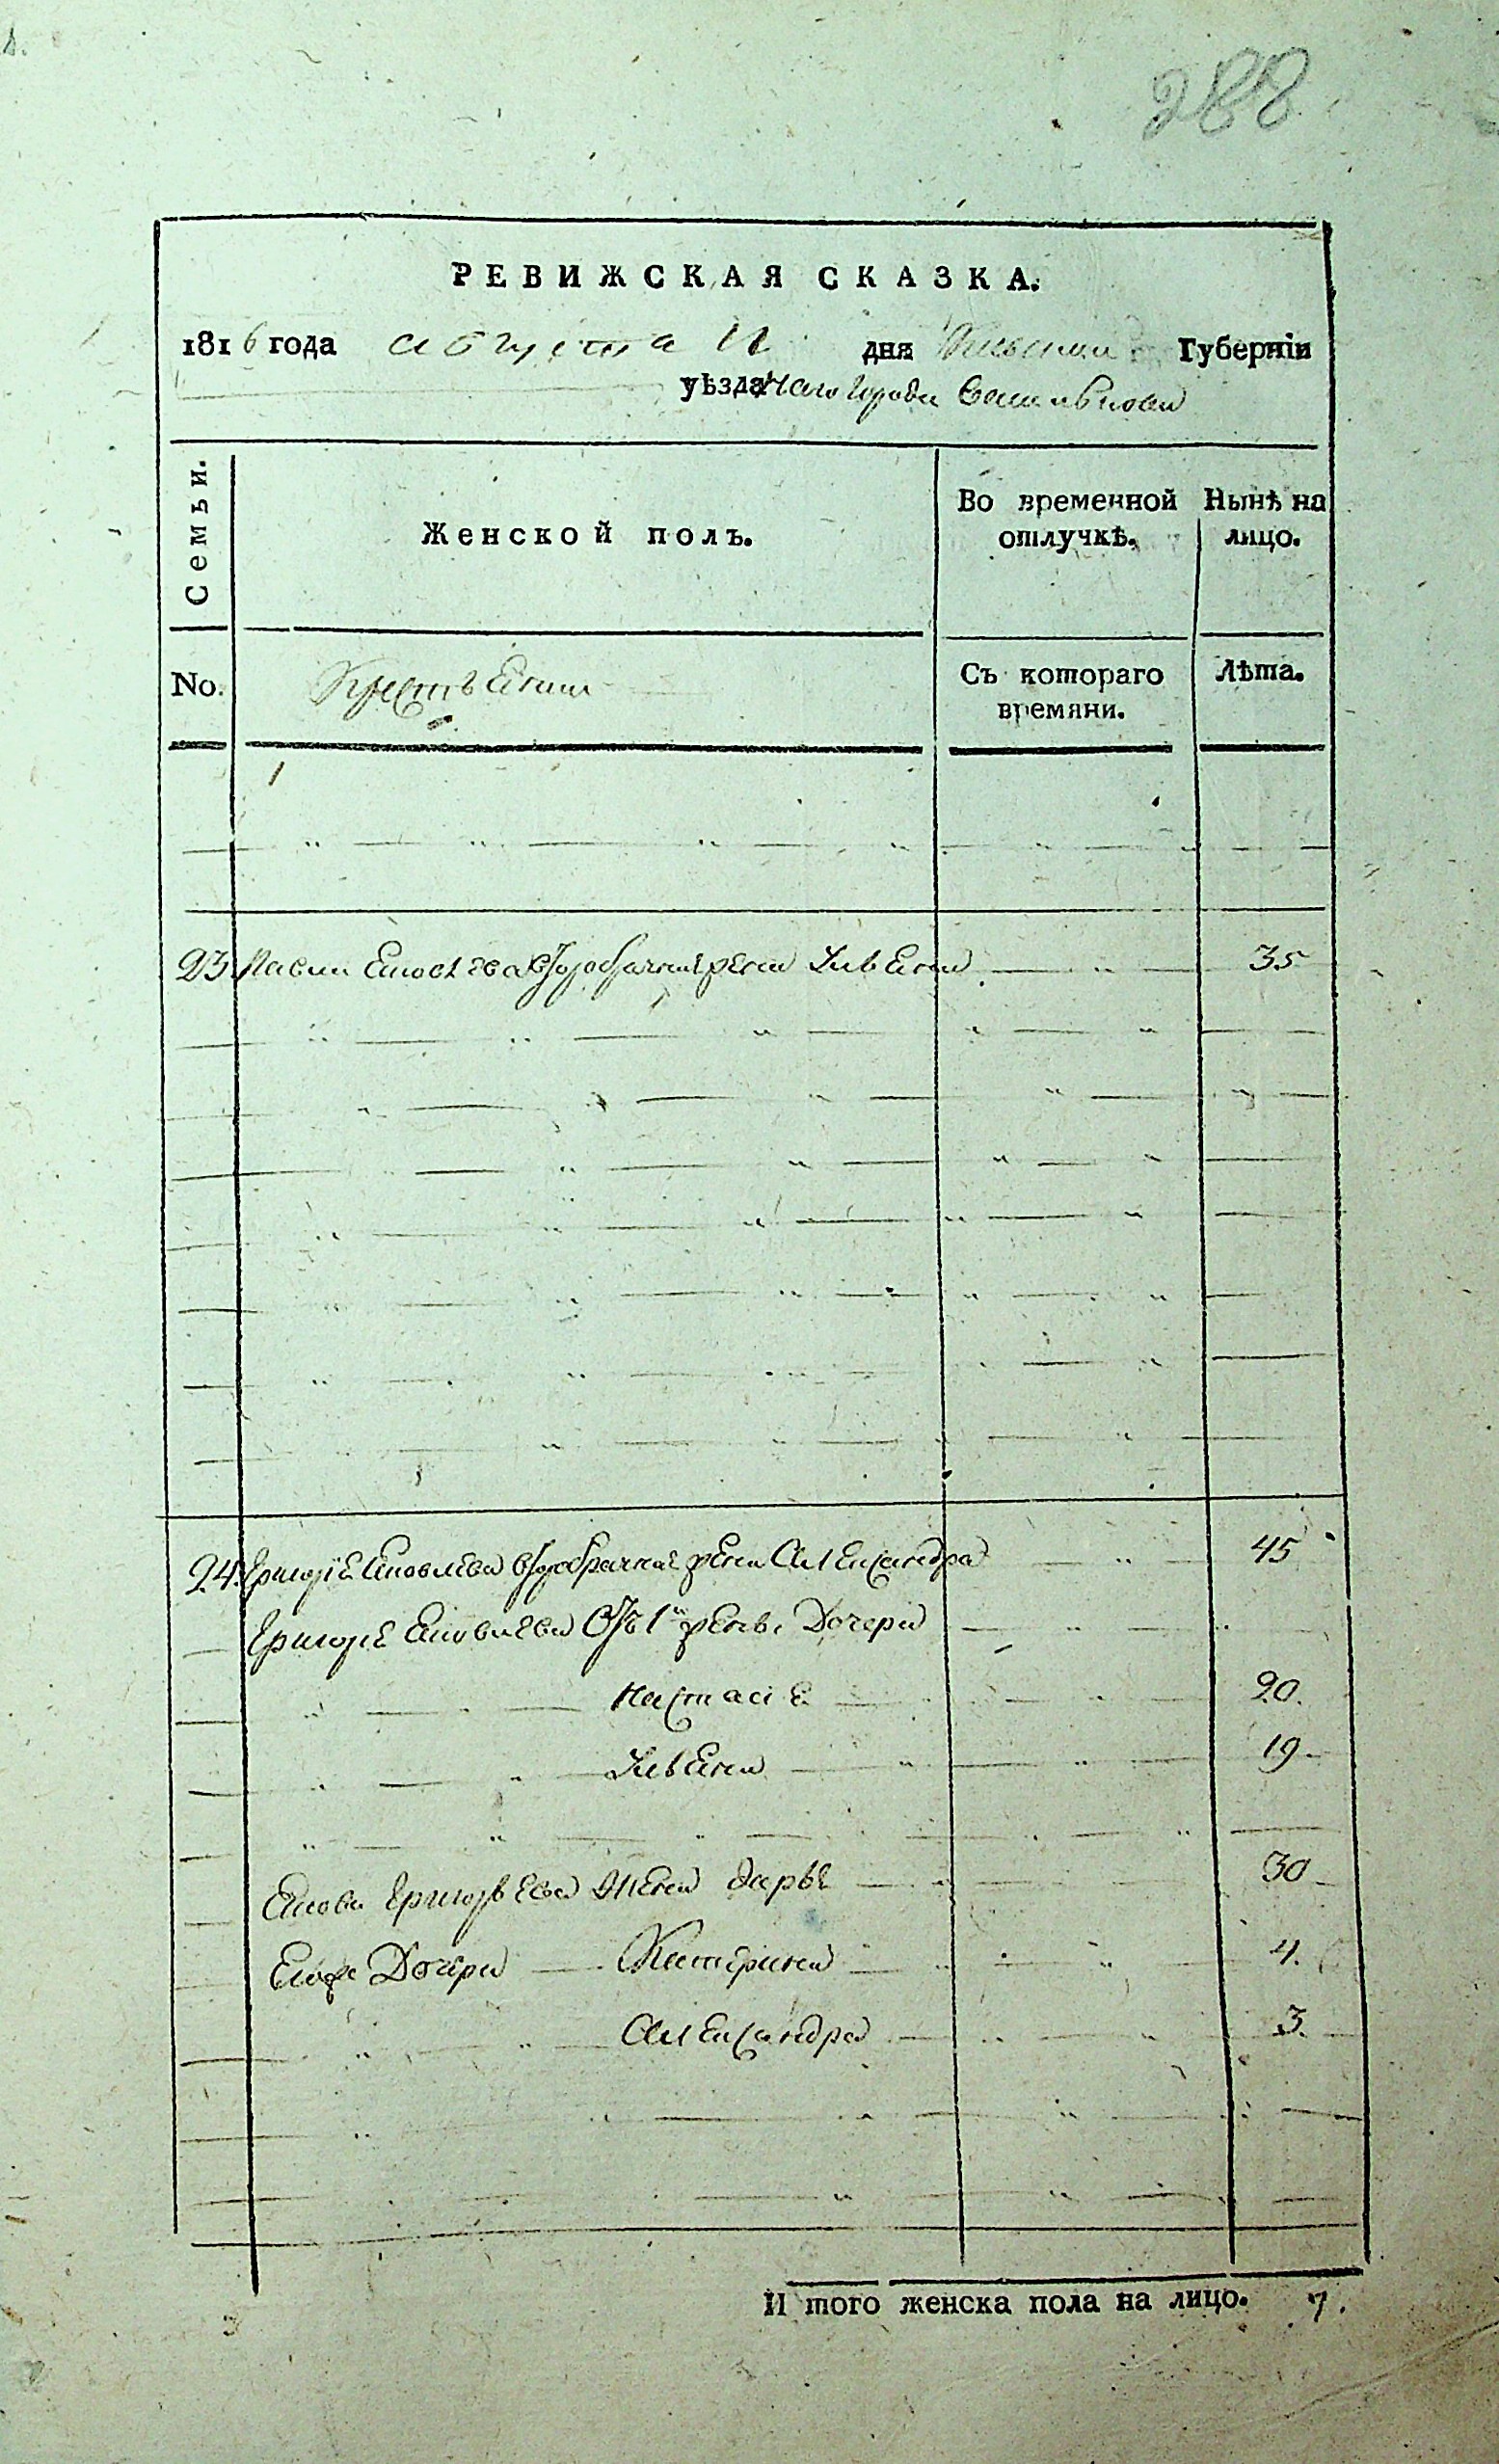 288
РЕВИЖСКАЯ СКАЗКА.
1816 года августа 11 дня Киевской Губерніи
уѣзда города Василькова
Семьи.
Женской полъ.
Во временной отлучкѣ.
Нынѣ на лицо.
No.
Съ котораго времяни.
Лѣта.
23 второбрачная жена Ульяна 35
24. Григорія Яковлева второбрачная жена Александра 45
Григорія Яковлева отъ 1й жены Дочери
Настасія 20.
Ульяна 19
Якова Григорьева жена Дарья 30
Его же Дочери Катерина 4.
Александра 3.
И того женска пола на лицо. 7.